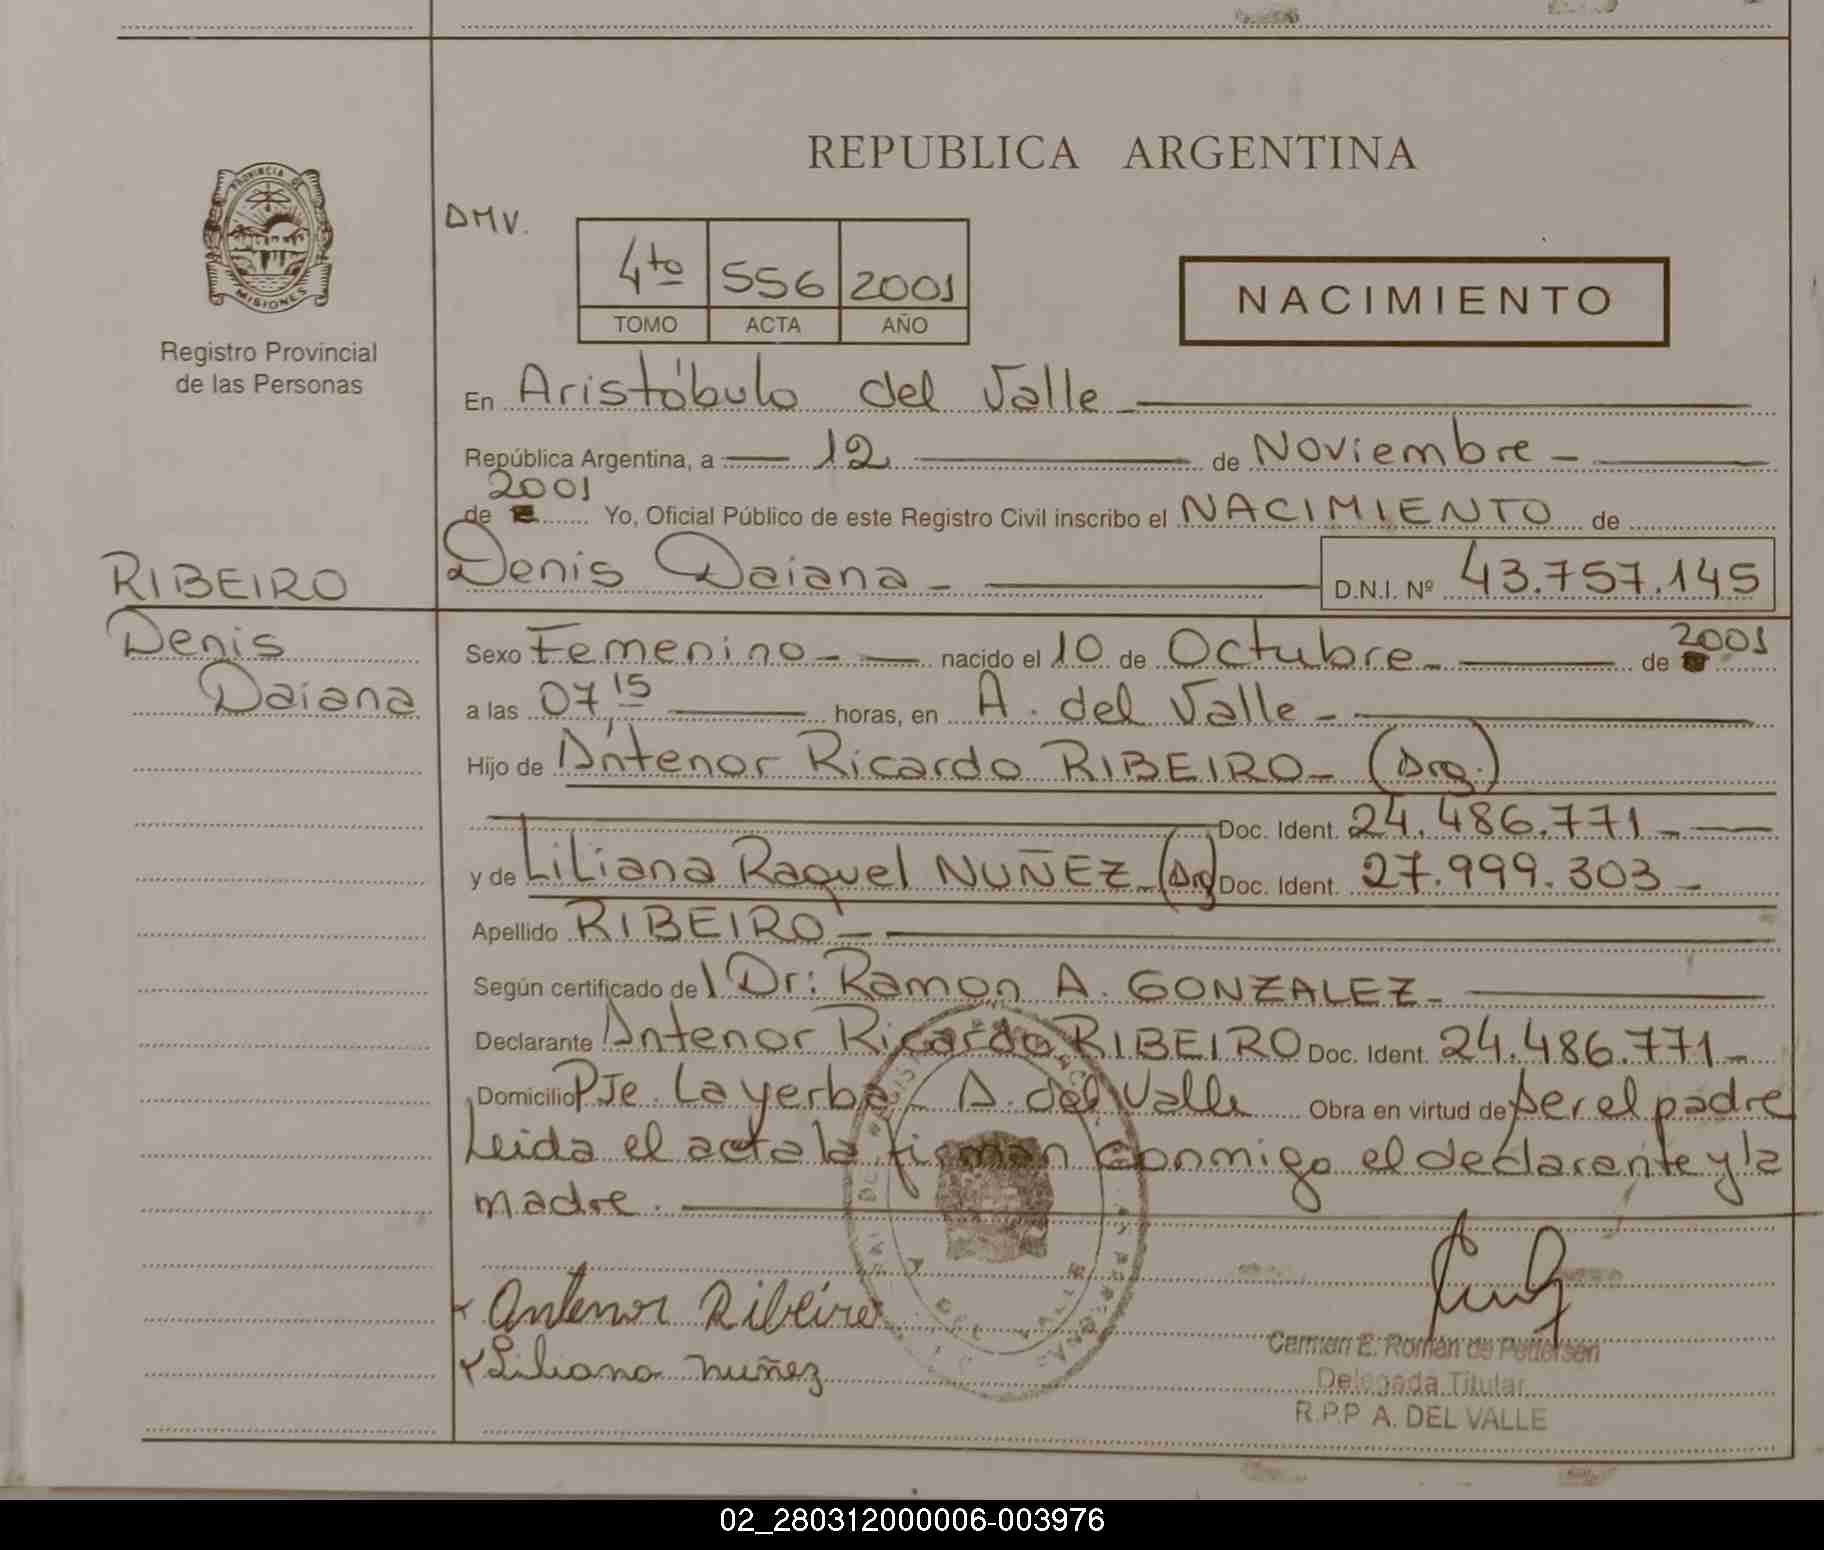 REPUBLICA ARGENTINA
PROVINCIA DE
MISIONES
Registro Provincial
de las Personas
DMV.
4to 556 2001
TOMO ACTA AÑO
NACIMIENTO
En Aristóbulo del Valle
República Argentina, a 12 de Noviembre
2001
de Yo, Oficial Público de este Registro Civil inscribo el NACIMIENTO de
RIBEIRO
Denis
Daiana
Denis Daiana D.N.I. Nº 43.757.145
Sexo Femenino nacido el 10 de Octubre de 2001
a las 07,15 horas, en A. del Valle
Hijo de Antenor Ricardo RIBEIRO (Arg.)
Doc. Ident. 24.486.771
y de Liliana Raquel NUÑEZ (Arg) Doc. Ident. 27.999.303
Apellido RIBEIRO
Según certificado de Dr: Ramon A. GONZALEZ
Declarante Antenor Ricardo RIBEIRO Doc. Ident. 24.486.771
Domicilio Pje. La yerba A. del Valle Obra en virtud de ser el padre
Leida el acta la firman conmigo el declarante y la
madre.
Antenor Ribeiro
Liliana Nuñez
Carmen E. Román de Pettersen
Delegada Titular
R.P.P A. DEL VALLE
02_280312000006-003976